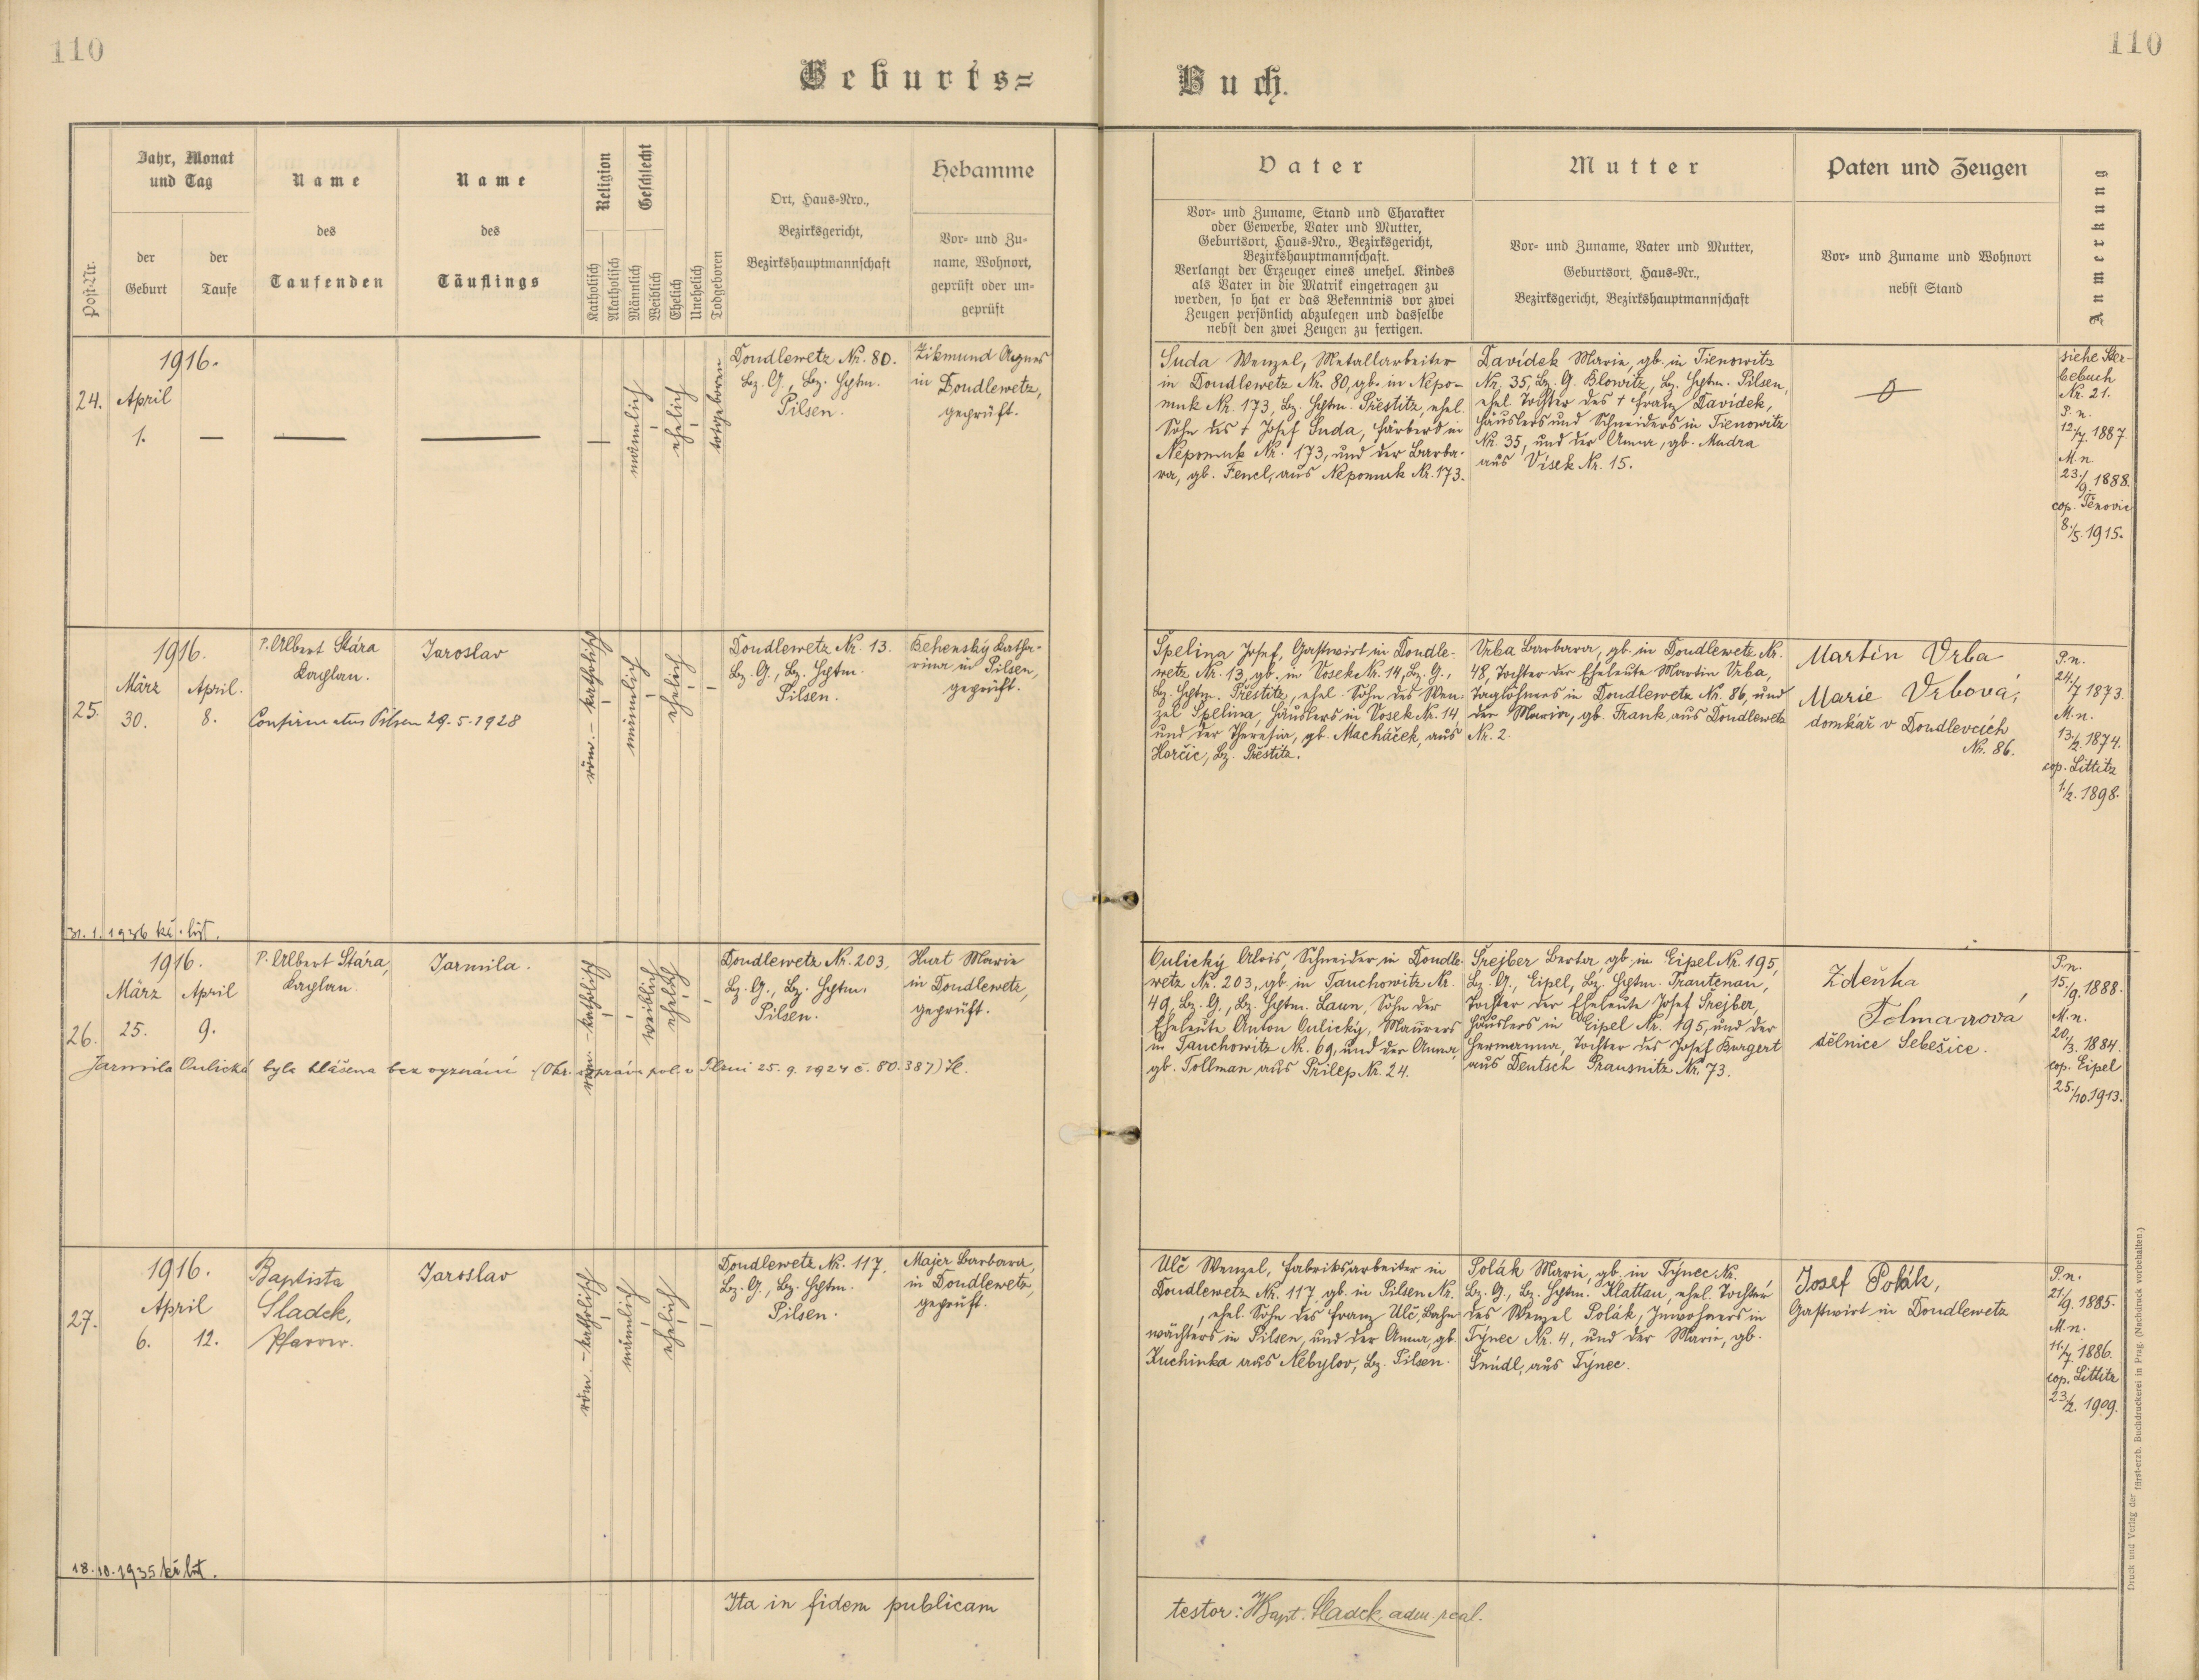 110
110
Geburts=
Buch.
Jahr, Monat
und Tag
der
Geburt
der
Taufe
Post-Nr.
Name
des
Taufenden
Name
des
Täuflings
Religion
Katholisch
Akatholisch
Geschlecht
Männlich
Weiblich
Ehelich
Unehelich
Todgeboren
Ort, Haus-Nro.,
Bezirksgericht,
Bezirkshauptmannschaft
Hebamme
Vor- und Zu-
name, Wohnort,
geprüft oder un-
geprüft
Vater
Vor- und Zuname, Stand und Charakter
oder Gewerbe, Vater und Mutter,
Geburtsort, Haus-Nro., Bezirksgericht,
Bezirkshauptmannschaft.
Verlangt der Erzeuger eines unehel. Kindes
als Vater in die Matrik eingetragen zu
werden, so hat er das Bekenntnis vor zwei
Zeugen persönlich abzulegen und dasselbe
nebst den zwei Zeugen zu fertigen.
Mutter
Vor- und Zuname, Vater und Mutter,
Geburtsort, Haus-Nr.,
Bezirksgericht, Bezirkshauptmannschaft
Paten und Zeugen
Vor- und Zuname und Wohnort
nebst Stand
Anmerkung
24.
1916.
April
1.
männlich
ehelich
totgeboren
Doudlewetz Nr. 80.
Bz. G., Bz. Hptm.
Pilsen.
Zikmund Agnes
in Doudlewetz,
geprüft.
Suda Wenzel, Metallarbeiter
in Doudlewetz Nr. 80, gb. in Nepo-
muk Nr. 173, Bz. Hptm. Přestitz, ehel.
Sohn des † Josef Suda, Färbers in
Nepomuk Nr. 173, und der Barba-
ra, gb. Fencl, aus Nepomuk Nr. 173.
Davídek Marie, gb. in Tienowitz
Nr. 35, Bz. G. Blowitz, Bz. Hptm. Pilsen,
ehel. Tochter des † Franz Davídek,
Häuslers und Schneiders in Tienowitz
Nr. 35, und der Anna, gb. Mudra
aus Vísek Nr. 15.
siehe Ster-
bebuch
Nr. 21.
P. n.
12./7. 1887.
M. n.
23./9. 1888.
cop. Těnovic
8./5. 1915.
25.
1916.
März
30.
April.
8.
P. Albert Stára
Kaplan.
Jaroslav
Confirmatus Pilsen 29.-5-1928
röm.-katholisch
männlich
ehelich
Doudlewetz Nr. 13.
Bz. G., Bz. Hptm.
Pilsen.
Behenský Katha-
rina in Pilsen,
geprüft.
Špelina Josef, Gastwirt in Doudle-
wetz Nr. 13, gb. in Vosek Nr. 14, Bz. G.,
Bz. Hptm. Přestitz, ehel. Sohn des Wen-
zel Špelina, Häuslers in Vosek Nr. 14,
und der Theresia, gb. Macháček, aus
Horčic, Bz. Přestitz.
Vrba Barbara, gb. in Doudlewetz Nr.
48, Tochter der Eheleute Martin Vrba,
Taglöhners in Doudlewetz Nr. 86, und
der Maria, gb. Frank aus Doudlewetz
Nr. 2.
Martin Vrba
Marie Vrbová,
domkář v Doudlevcích
Nr. 86.
P. n.
24./7 1873.
M. n.
13./2. 1874.
cop. Littitz
1./2. 1898.
31. 1. 1936 kř. list.
26.
1916.
März
25.
April
9.
P. Albert Stára,
Kaplan.
Jarmila.
röm.-katholisch
weiblich
ehelich
Doudlewetz Nr. 203,
Bz. G., Bz. Hptm.
Pilsen.
Hurt Marie
in Doudlewetz,
geprüft.
Jarmila Oulická byla hlášena bez vyznání (Okr. správa pol. v Plzni 25. 9. 1924 č. 80.387)
Oulický Alois, Schneider in Doudle-
wetz Nr. 203, gb. in Tauchowitz Nr.
49, Bz. G., Bz. Hptm. Laun, Sohn der
Eheleute Anton Oulický, Maurers
in Tauchowitz Nr. 69, und der Anna,
gb. Tollman aus Přilep Nr. 24.
Šrejber Berta, gb. in Eipel Nr. 195,
Bz. G., Eipel, Bz. Hptm. Trautenau,
Tochter der Eheleute Josef Šrejber,
Häuslers in Eipel Nr. 195, und der
Hermanna, Tochter des Josef Kurgert
aus Deutsch Prausnitz Nr. 73.
Zdeňka
Tolmanová
dělnice Sebešice.
P. n.
15./9. 1888.
M. n.
20./3. 1884.
cop. Eipel
25./10. 1913.
27.
1916.
April
6.
12.
Baptista
Sladek,
Pfarrer.
Jaroslav
röm.-katholisch
männlich
ehelich
Doudlewetz Nr. 117.
Bz. G., Bz. Hptm.
Pilsen.
Majer Barbara,
in Doudlewetz,
geprüft.
Ulč Wenzel, Fabriksarbeiter in
Doudlewetz Nr. 117, gb. in Pilsen Nr.
, ehel. Sohn des Franz Ulč, Bahn-
wächters in Pilsen, und der Anna, gb.
Kuchinka aus Nebylov, Bz. Pilsen.
Polák Marie, gb. in Týnec Nr.
Bz. G., Bz. Hptm. Klattau, ehel. Tochter
des Wenzel Polák, Inwohners in
Týnec Nr. 4, und der Marie, gb.
Šnédl, aus Týnec.
Josef Polák,
Gastwirt in Doudlewetz
P. n.
21./9. 1885.
M. n.
11./7. 1886.
cop. Littitz
23./2. 1909.
18. 10. 1935 kř. list.
Ita in fidem publicam
testor: JBapt. Sladek, adm. real.
Druck und Verlag der fürst-erzb. Buchdruckerei in Prag. (Nachdruck vorbehalten.)